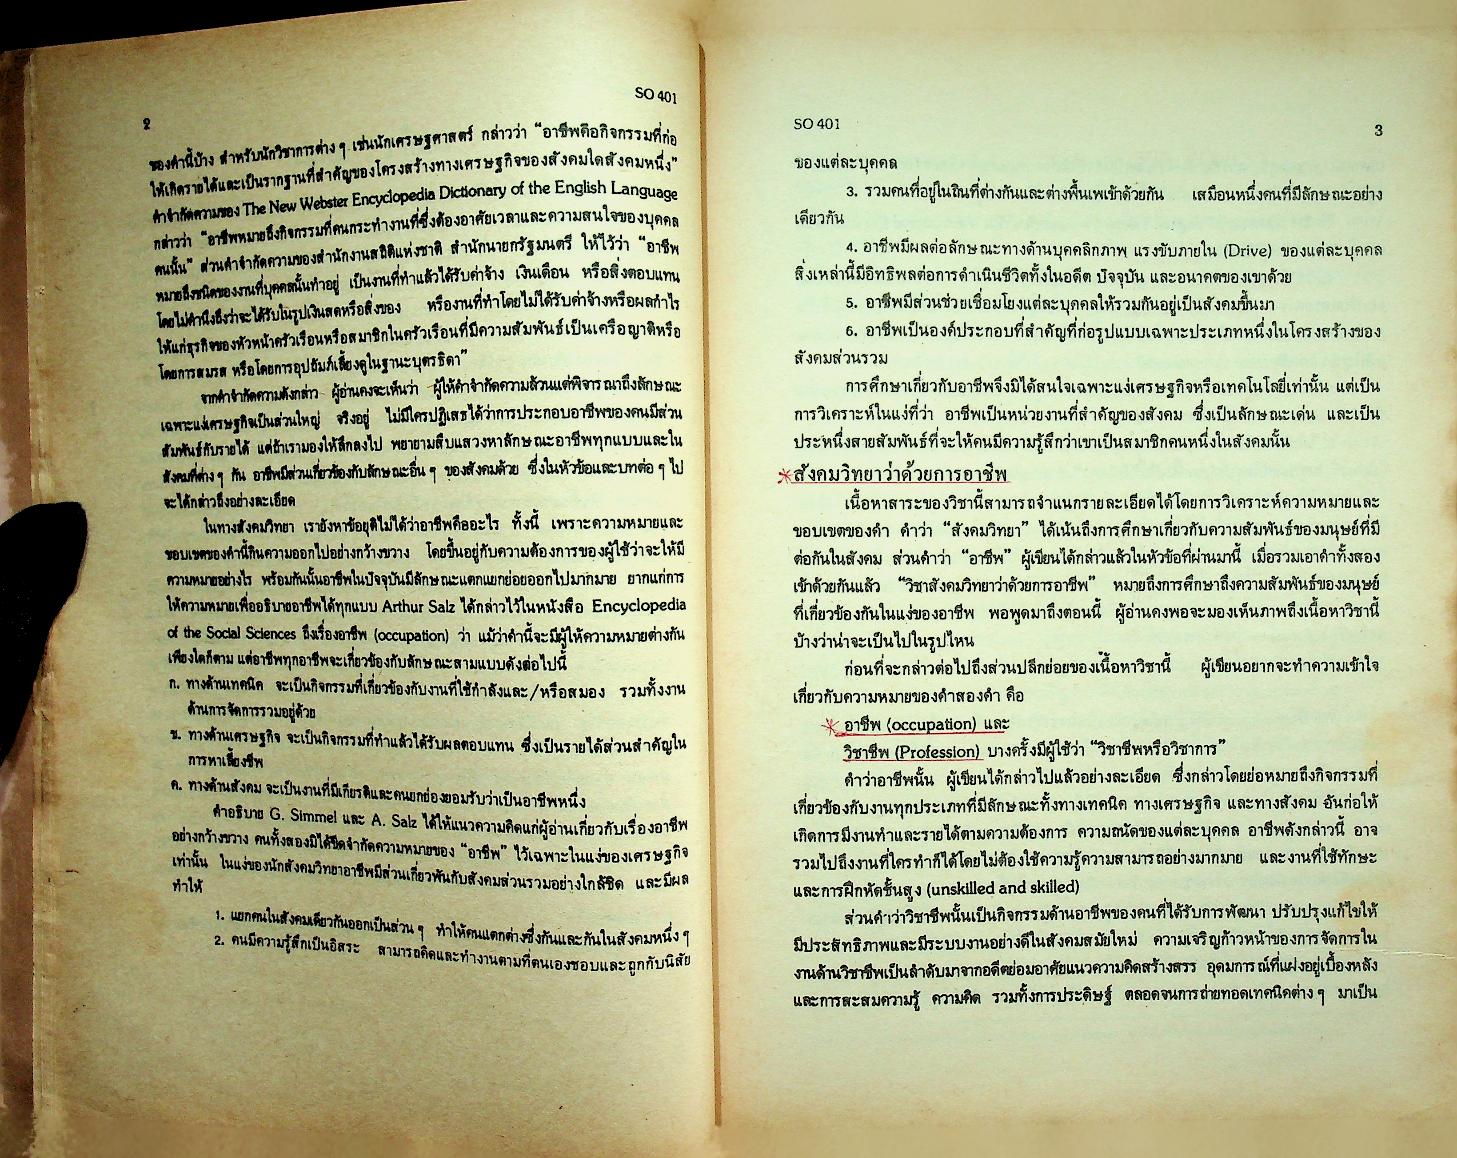 2
SO 401
ของคำนี้บ้าง สำหรับนักวิชาการต่าง ๆ เช่นนักเศรษฐศาสตร์ กล่าวว่า “อาชีพคือกิจกรรมที่ก่อ
ให้เกิดรายได้และเป็นรากฐานที่สำคัญของโครงสร้างทางเศรษฐกิจของสังคมใดสังคมหนึ่ง”
คำจำกัดความของ The New Webster Encyclopedia Dictionary of the English Language
กล่าวว่า “อาชีพหมายถึงกิจกรรมที่คนกระทำงานที่ซึ่งต้องอาศัยเวลาและความสนใจของบุคคล
คนนั้น” ส่วนคำจำกัดความของสำนักงานสถิติแห่งชาติ สำนักนายกรัฐมนตรี ให้ไว้ว่า “อาชีพ
หมายถึงชนิดของงานที่บุคคลนั้นทำอยู่ เป็นงานที่ทำแล้วได้รับค่าจ้าง เงินเดือน หรือสิ่งตอบแทน
โดยไม่คำนึงถึงว่าจะได้รับในรูปเงินสดหรือสิ่งของ หรืองานที่ทำโดยไม่ได้รับค่าจ้างหรือผลกำไร
ให้แก่ธุรกิจของหัวหน้าครัวเรือนหรือสมาชิกในครัวเรือนที่มีความสัมพันธ์เป็นเครือญาติหรือ
โดยการสมรส หรือโดยการอุปถัมภ์เลี้ยงดูในฐานะบุตรธิดา”
จากคำจำกัดความดังกล่าว ผู้อ่านคงจะเห็นว่า ผู้ให้คำจำกัดความล้วนแต่พิจารณาถึงลักษณะ
เฉพาะแง่เศรษฐกิจเป็นส่วนใหญ่ จริงอยู่ ไม่มีใครปฏิเสธได้ว่าการประกอบอาชีพของคนมีส่วน
สัมพันธ์กับรายได้ แต่ถ้าเรามองให้ลึกลงไป พยายามสืบแสวงหาลักษณะอาชีพทุกแบบและใน
สังคมที่ต่าง ๆ กัน อาชีพมีส่วนเกี่ยวข้องกับลักษณะอื่น ๆ ของสังคมด้วย ซึ่งในหัวข้อและบทต่อ ๆ ไป
จะได้กล่าวถึงอย่างละเอียด
ในทางสังคมวิทยา เรายังหาข้อยุติไม่ได้ว่าอาชีพคืออะไร ทั้งนี้ เพราะความหมายและ
ขอบเขตของคำนี้กินความออกไปอย่างกว้างขวาง โดยขึ้นอยู่กับความต้องการของผู้ใช้ว่าจะให้มี
ความหมายอย่างไร พร้อมกันนั้นอาชีพในปัจจุบันมีลักษณะแตกแยกย่อยออกไปมากมาย ยากแก่การ
ให้ความหมายเพื่ออธิบายอาชีพได้ทุกแบบ Arthur Salz ได้กล่าวไว้ในหนังสือ Encyclopedia
of the Social Sciences ถึงเรื่องอาชีพ (occupation) ว่า แม้ว่าคำนี้จะมีผู้ให้ความหมายต่างกัน
เพียงใดก็ตาม แต่อาชีพทุกอาชีพจะเกี่ยวข้องกับลักษณะสามแบบดังต่อไปนี้
ก. ทางด้านเทคนิค จะเป็นกิจกรรมที่เกี่ยวข้องกับงานที่ใช้กำลังและ/หรือสมอง รวมทั้งงาน
ด้านการจัดการรวมอยู่ด้วย
ข. ทางด้านเศรษฐกิจ จะเป็นกิจกรรมที่ทำแล้วได้รับผลตอบแทน ซึ่งเป็นรายได้ส่วนสำคัญใน
การหาเลี้ยงชีพ
ค. ทางด้านสังคม จะเป็นงานที่มีเกียรติและคนยกย่องยอมรับว่าเป็นอาชีพหนึ่ง
คำอธิบาย G. Simmel และ A. Salz ได้ให้แนวความคิดแก่ผู้อ่านเกี่ยวกับเรื่องอาชีพ
อย่างกว้างขวาง คนทั้งสองมิได้ขีดจำกัดความหมายของ “อาชีพ” ไว้เฉพาะในแง่ของเศรษฐกิจ
เท่านั้น ในแง่ของนักสังคมวิทยาอาชีพมีส่วนเกี่ยวพันกับสังคมส่วนรวมอย่างใกล้ชิด และมีผล
ทำให้
1. แยกคนในสังคมเดียวกันออกเป็นส่วน ๆ ทำให้คนแตกต่างซึ่งกันและกันในสังคมหนึ่ง ๆ
2. คนมีความรู้สึกเป็นอิสระ สามารถคิดและทำงานตามที่ตนเองชอบและถูกกับนิสัย
SO 401
3
ของแต่ละบุคคล
3. รวมคนที่อยู่ในถินที่ต่างกันและต่างพื้นเพเข้าด้วยกัน เสมือนหนึ่งคนที่มีลักษณะอย่าง
เดียวกัน
4. อาชีพมีผลต่อลักษณะทางด้านบุคคลิกภาพ แรงขับภายใน (Drive) ของแต่ละบุคคล
สิ่งเหล่านี้มีอิทธิพลต่อการดำเนินชีวิตทั้งในอดีต ปัจจุบัน และอนาคตของเขาด้วย
5. อาชีพมีส่วนช่วยเชื่อมโยงแต่ละบุคคลให้รวมกันอยู่เป็นสังคมขึ้นมา
6. อาชีพเป็นองค์ประกอบที่สำคัญที่ก่อรูปแบบเฉพาะประเภทหนึ่งในโครงสร้างของ
สังคมส่วนรวม
การศึกษาเกี่ยวกับอาชีพจึงมิได้สนใจเฉพาะแง่เศรษฐกิจหรือเทคโนโลยี่เท่านั้น แต่เป็น
การวิเคราะห์ในแง่ที่ว่า อาชีพเป็นหน่วยงานที่สำคัญของสังคม ซึ่งเป็นลักษณะเด่น และเป็น
ประหนึ่งสายสัมพันธ์ที่จะให้คนมีความรู้สึกว่าเขาเป็นสมาชิกคนหนึ่งในสังคมนั้น
*สังคมวิทยาว่าด้วยการอาชีพ
เนื้อหาสาระของวิชานี้สามารถจำแนกรายละเอียดได้โดยการวิเคราะห์ความหมายและ
ขอบเขตของคำ คำว่า “สังคมวิทยา” ได้เน้นถึงการศึกษาเกี่ยวกับความสัมพันธ์ของมนุษย์ที่มี
ต่อกันในสังคม ส่วนคำว่า “อาชีพ” ผู้เขียนได้กล่าวแล้วในหัวข้อที่ผ่านมานี้ เมื่อรวมเอาคำทั้งสอง
เข้าด้วยกันแล้ว “วิชาสังคมวิทยาว่าด้วยการอาชีพ” หมายถึงการศึกษาถึงความสัมพันธ์ของมนุษย์
ที่เกี่ยวข้องกันในแง่ของอาชีพ พอพูดมาถึงตอนนี้ ผู้อ่านคงพอจะมองเห็นภาพถึงเนื้อหาวิชานี้
บ้างว่าน่าจะเป็นไปในรูปไหน
ก่อนที่จะกล่าวต่อไปถึงส่วนปลีกย่อยของเนื้อหาวิชานี้ ผู้เขียนอยากจะทำความเข้าใจ
เกี่ยวกับความหมายของคำสองคำ คือ
* อาชีพ (occupation) และ
วิชาชีพ (Profession) บางครั้งมีผู้ใช้ว่า “วิชาชีพหรือวิชาการ”
คำว่าอาชีพนั้น ผู้เขียนได้กล่าวไปแล้วอย่างละเอียด ซึ่งกล่าวโดยย่อหมายถึงกิจกรรมที่
เกี่ยวข้องกับงานทุกประเภทที่มีลักษณะทั้งทางเทคนิค ทางเศรษฐกิจ และทางสังคม อันก่อให้
เกิดการมีงานทำและรายได้ตามความต้องการ ความถนัดของแต่ละบุคคล อาชีพดังกล่าวนี้ อาจ
รวมไปถึงงานที่ใครทำก็ได้โดยไม่ต้องใช้ความรู้ความสามารถอย่างมากมาย และงานที่ใช้ทักษะ
และการฝึกหัดชั้นสูง (unskilled and skilled)
ส่วนคำว่าวิชาชีพนั้นเป็นกิจกรรมด้านอาชีพของคนที่ได้รับการพัฒนา ปรับปรุงแก้ไขให้
มีประสิทธิภาพและมีระบบงานอย่างดีในสังคมสมัยใหม่ ความเจริญก้าวหน้าของการจัดการใน
งานด้านวิชาชีพเป็นลำดับมาจากอดีตย่อมอาศัยแนวความคิดสร้างสรร อุดมการณ์ที่แฝงอยู่เบื้องหลัง
และการสะสมความรู้ ความคิด รวมทั้งการประดิษฐ์ ตลอดจนการถ่ายทอดเทคนิคต่าง ๆ มาเป็น